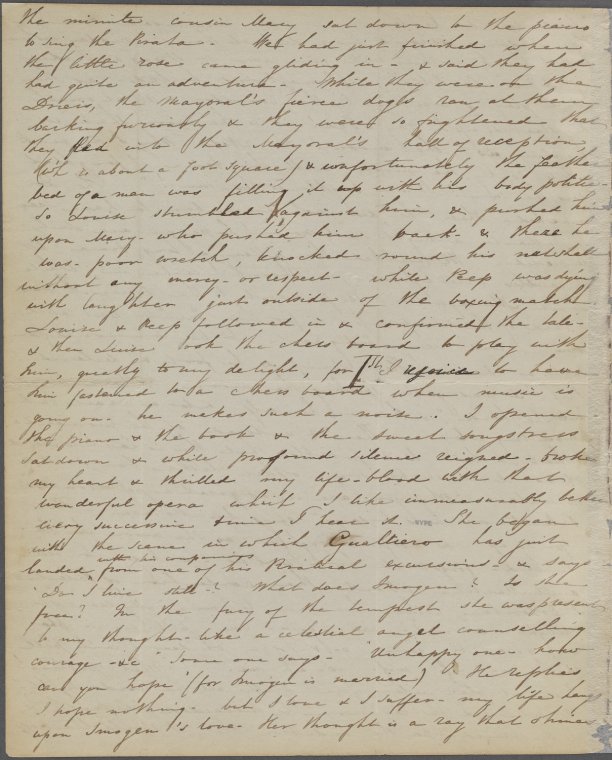 the minute cousin Mary sat down to the piano
to sing the Pirata - We had just finished when
the little rose came gliding in - & said they had
had quite an adventure - While they were on the
the Mayoral's fierce dogs ran at them
barking furiously & they were so frightened that
they fled into the Mayoral's hall of reception
(wh is about a foot square) & unfortunately the feather
bed of a man was filling it up with his body politic
so Louise stumbled against him, & pushed him
upon Mary - who pushed him back - & there he
was - poor wretch, knocked round his nutshell
without any mercy - or respect - while Peep was dying
with laughter just outside of the boxing match
Louise & Peep followed in & confirmed the tale -
& then Luise took the chess board to play with
him, greatly to my delight, for I rejoice to have
him fastened to a chess board when music is
going on - he makes such a noise. I opened
the piano & the book & the sweet songstress
sat down & while profound silence reigned - broke
my heart & thrilled my life-blood with that
wonderful opera which I like immeasurably better
every successive time I hear it. She began
NYPL
with the scene in which Gualtiero has just
with his companions
landed from one of his Piratical excursions & says -
"Do I live still? What does Imogen? Is she
free? In the fury of the tempest she was present
to my thought - like a celestial angel counselling
courage - &c" Some one says - "Unhappy one - how
can you hope" (for Imogen is married) He replies
I hope nothing - but I love & I suffer - my life hangs
upon Imogen's love - Her thought is a ray that shines